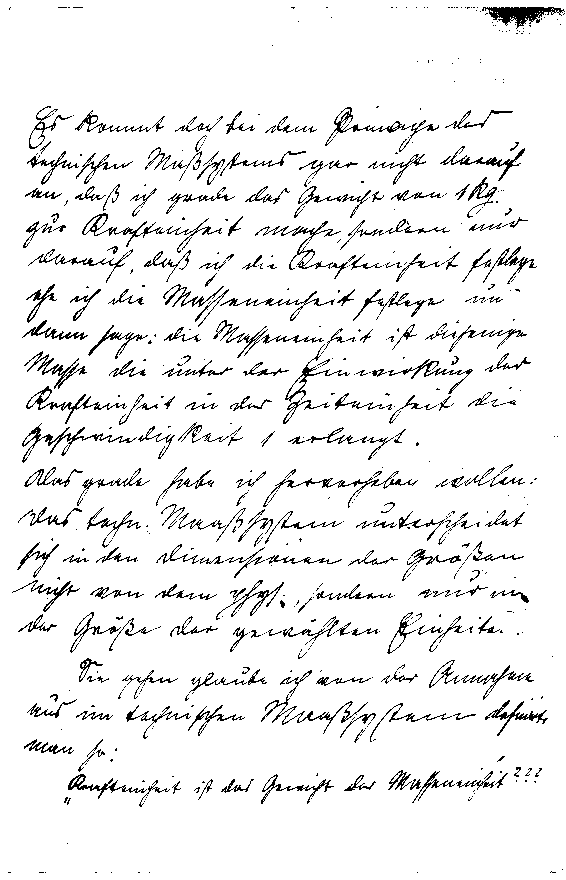 Es kommt doch bei dem Principe des
technischen Maßsystems gar nicht darauf
an, daß ich grade das Gewicht von 1 kg.
zur Krafteinheit mache, sondern nur
darauf, daß ich die Krafteinheit festlege
ehe ich die Masseneinheit festlege un
dann sage: die Masseneinheit ist diejenige
Masse die unter der Einwirkung der
Krafteinheit in der Zeiteinheit die
Geschwindigkeit 1 erlangt.
Das grade habe ich hervorheben wollen:
das techn. Maaßsystem unterscheidet
sich in den Dimensionen der Größen
nicht von dem phys., sondern nur in
der Größe der gewählten Einheiten.
Sie gehen glaube ich von der Annahme
aus im technischen Maaßsystem definirte
man so:
„Krafteinheit ist das Gewicht der Masseneinheit"???